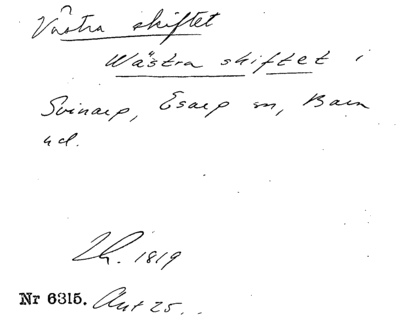 Västra skiftet
Wästra skiftet i
Svinarp, Esarp m, Bara
hd.
Lh. 1819
Nr 6315. Akt 25.